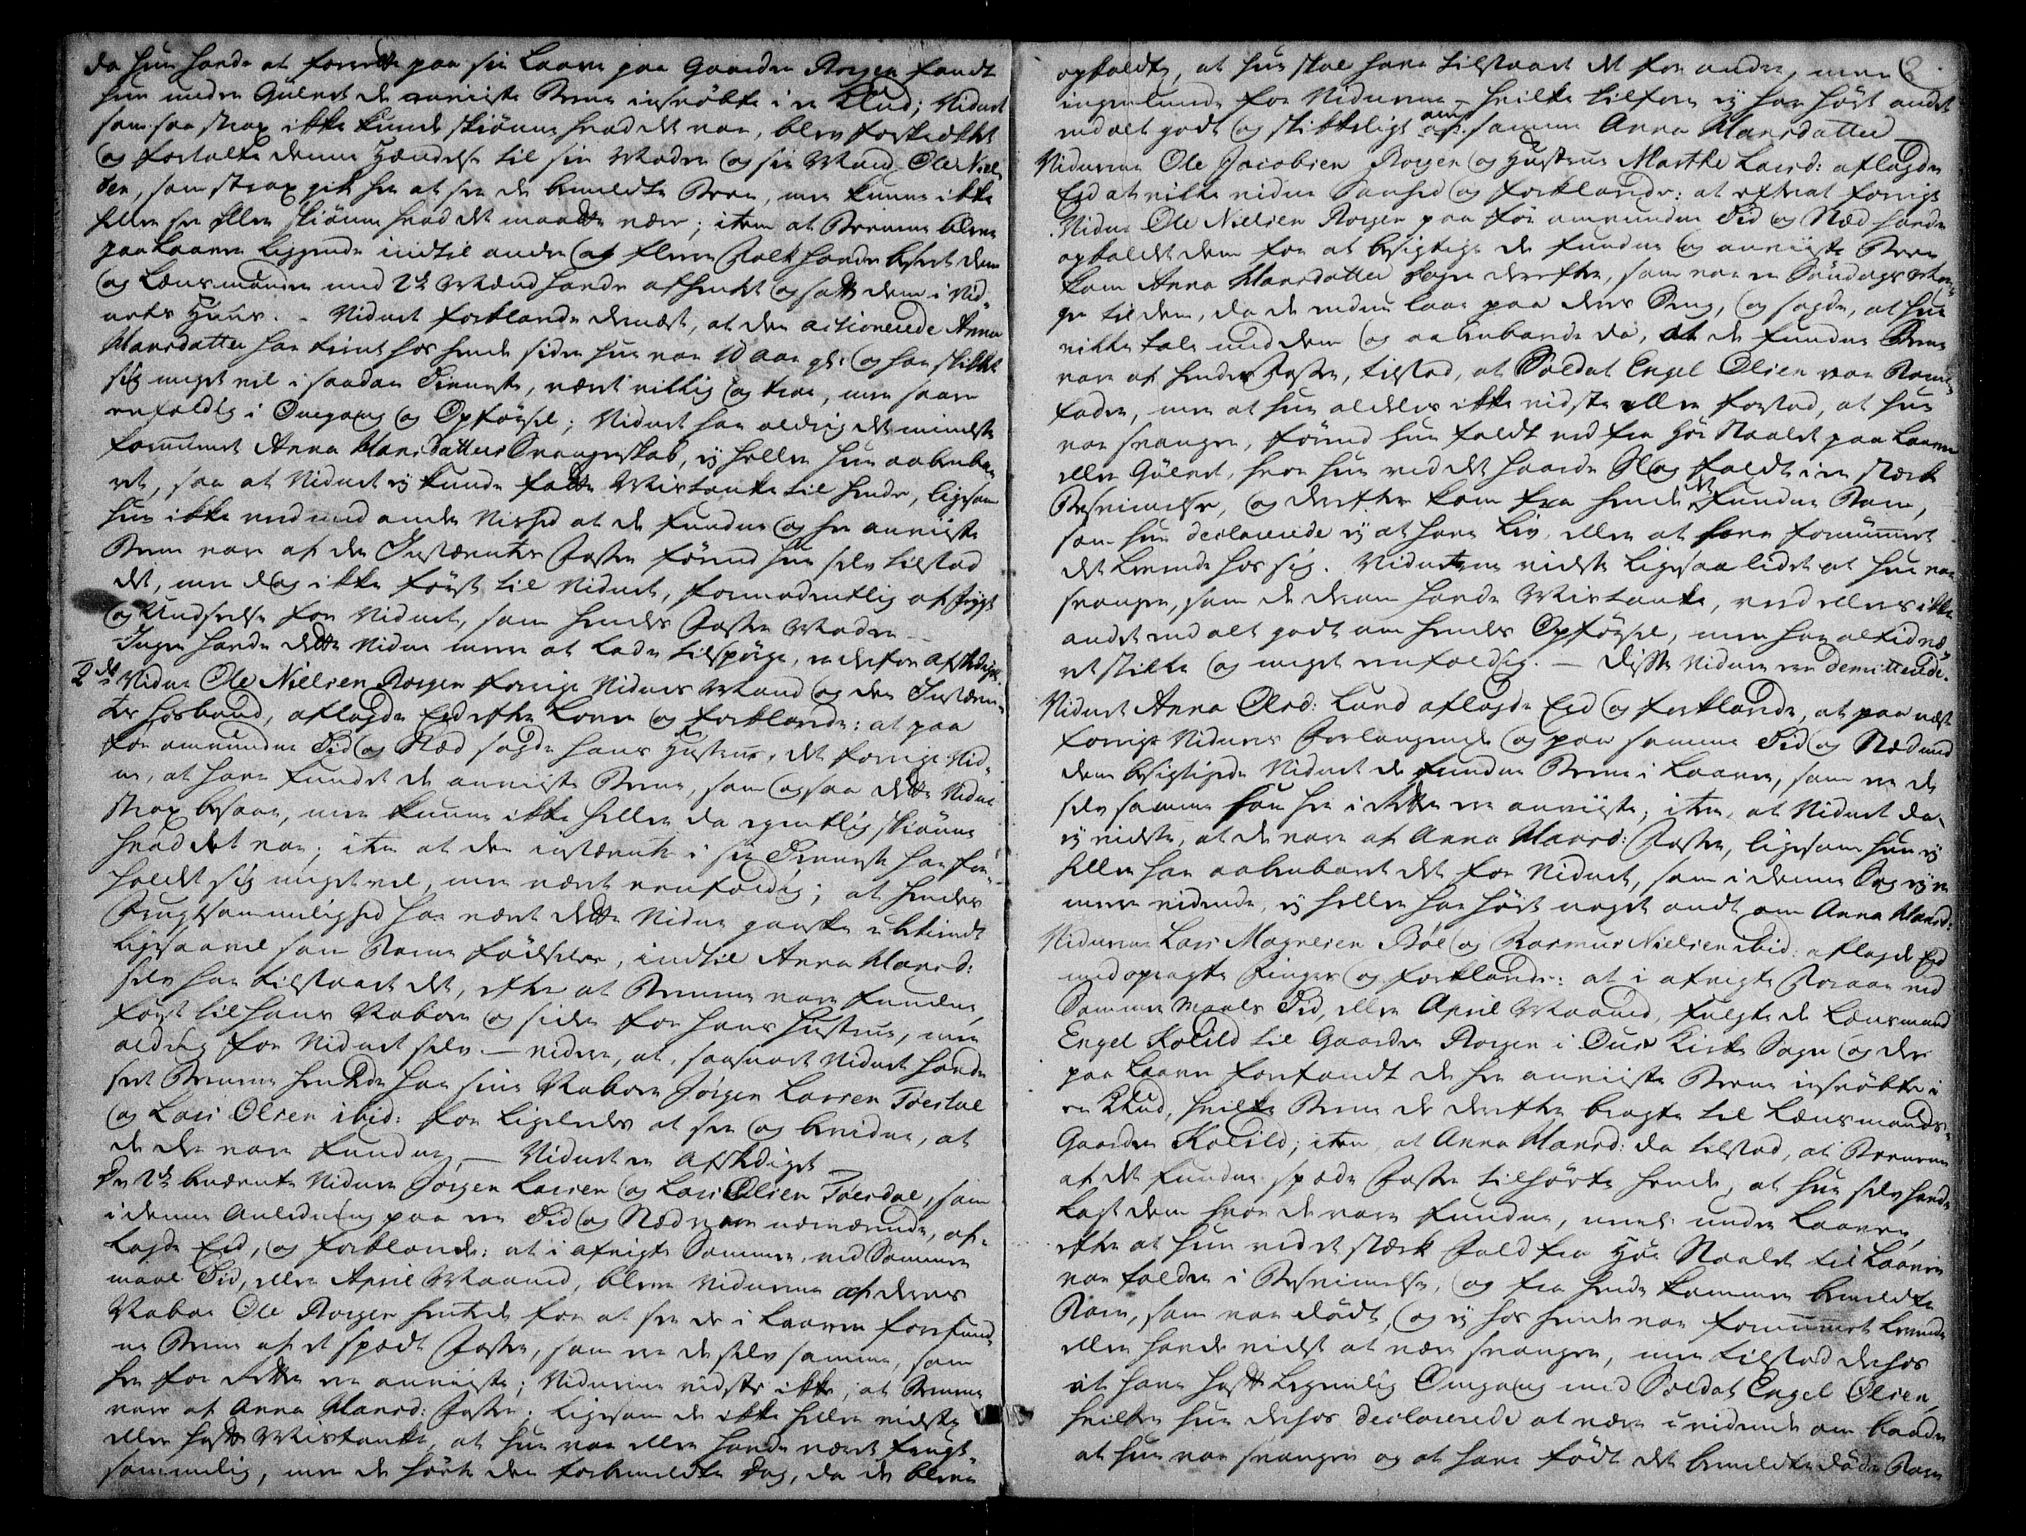 da hun havde at forrette paa sin Laave paa Gaarden Rogen fandt
hun under Gulvet de anviiste Been insvöbte i en Klud; Vidnet
som saa strax ikke kunde skiönne hvad det var, blev forskrækket
og fortalte denne Hændelse til sin Moder og sin Mand Ole Niel-
sen, som strax gik hen at see de bemeldte Been, men kunne ikke
heller see eller skiönne hvad det maatte være; item at Benene bleve
paa Laaven liggende indtil andre og flere Folk havde beseet dem
og Lensmanden med 2de Mænd havde afhentet og sadt dem i Vid-
nets Huus. - Vidnet forklarede dernæst, at den actionerede Anna
Hansdatter har tient hos hende siden hun var 10 Aar gl: og har skikket
sig meget vel i saadan Tieneste, været villig og troe, men saare
eenfoldig i Omgang og Opförsel; Vidnet har aldrig det mindste
fornummet Anna Hansdatters Svangerskab, ej heller hun aabenba-
ret, saa at Vidnet ej kunde fatte Mistanke til hende, ligesom
hun ikke veed med anden Vished at de fundne og her anviiste
Been vare af den Instævntes Foster förend hun selv tilstod
det, men dog ikke först til Vidnet, formodentlig af Frygt
og Undseelse for Vidnet, som hendes Foster Moder. -
Ingen havde dette Vidne mere at lade tilspörge, er derfor afskediget.
2det Vidne Ole Nielsen Rogen forrige Vidnes Mand og den Instævn-
tes Hosbond, aflagde Eed efter Loven og forklarede: at paa
for ommeldte Tid og Stæd sagde hans Hustrue, det forrige Vid-
ne, at have fundet de anviiste Been, som ogsaa dette Vidne
strax besaae, men kunne ikke heller da egentlig skiönne
hvad det var; item at den instævnte i sin Tieneste har for-
holdt sig meget vel, men været eenfoldig; at hendes
Frugtsommelighed har været dette Vidne ganske ubekiendt
ligesaavel som Barne Födselen, indtil Anna Hansd:
selv har tilstaaet det, efter at Benene vare fundne,
först til hans Naboer og siden for hans Hustrue, men
aldrig for Vidnet selv. - videre, at, saasnart Vidnet havde
seet Benene hentede han sine Naboer Jörgen Larsen Töesdal
og Lars Olsen ibid: for ligeledes at see og bevidne, at
de der vare fundne, - Vidnet er afskediget -
De 2de benævnte Vidner Jörgen Larsen og Lars Olsen Töesdal, som
i denne Anledning paa een Tid og Stæd vare nærværende, af-
lagde Eed, og forklarede: at i afvigte Sommer, ved Sommer
maal Tid, eller April Maaned, bleve Vidnerne af deres
Naboe Ole Rogen hentede for at see de i Laaven forefund-
ne Been af et spædt Foster, som er de selv samme, som
her for Retten ere anviiste; Vidnerne vidste ikke, at Benene
vare af Anna Hansd: Foster; ligesom de ikke heller vidste
eller hafte Mistanke, at hun var eller havde været frugt-
sommelig, men de hörte den forbemeldte Dag, da de bleve
opholdte, at hun skal have tilstaaet det for andre, men
ingenlunde for Vidnerne - hvilke tilforn ej har hört andet
end alt godt og skikkeligt om samme Anna Hansdatter -
Vidnerne Ole Jacobsen Rogen og Hustrue Marthe Larsd: aflagde
Eed at ville vidne Sanhed og forklarede: at efterat forrige
Vidne Ole Nielsen Rogen paa for ommeldte Tid og Stæd havde
opholdet dem for at besigtige de fundne og anviiste Been
kom Anna Hansdatter Dagen derefter, som var en Söndags Mor-
gen til dem, da de endnu laae paa deres Seng, og sagde, at hun
vilde tale med dem og aabenbarede da, at de fundne Been
vare af hendes Foster, tilstod, at Soldat Engel Olsen var Barne-
fader, men at hun aldeles ikke vidste eller forstod, at hun
var svanger, förend hun faldt ned fra Höe Staalet paa Laaven
eller Gulvet, hvor hun ved det haarde Slag faldt i en stærk
Besvimelse, og derefter kom fra hende det fundne Barn,
som hun declarerede ej at have Liv, eller at have fornummet
det levende hos sig. Vidnerne vidste ligesaa lidet at hun var
svanger, som de derom havde Mistanke, veed ellers ikke
andet end alt godt om hendes Opförsel, men har altid væ-
ret stille og meget eenfoldig. - Disse Vidner ere demitterede.
Vidnet Anna Olsd: Lund aflagde Eed og forklarede, at paa næst
forrige Vidners Forlangende og paa samme Tid og Stæd med
dem besigtigede Vidnet de fundne Been i Laaven, som er de
selv samme som her i Retten ere anviiste; item, at Vidnet da
ej vidste, at de vare af Anna Hansd: Foster, ligesom hun ej
heller har aabenbaret det for Vidnet, som i denne Sag ej er
mere vidende, ej heller har hört noget ondt om Anna Hansd:
Vidnerne Lars Magnesen Böe og Rasmus Nielsen ibid: aflagde Eed
med opragte Finger og forklarede: at i afvigte Foraar ved
Sommer Maals Tid, eller April Maaned, fulgte de Lensmand
Engel Kolild til Gaarden Rogen i Ous Kirke Sogn og der
paa Laaven forefandt de her anviiste Been insvöbte i
en Klud, hvilke Been de derefter bragte til Lensmands-
Gaarden Kolild; item, at Anna Hansd: da tilstod, at Benene
af det fundne spæde Foster tilhörte hende, at hun selv havde
lagt dem hvor de vare fundne, neml: under Laaven,
efter at hun ved et stærk Fald fra Höe Staalet til Laaven
var falden i Besvimelse, og fra hende kommen bemeldte
Barn, som var dödt, og ej hos hende var fornummet levende
eller havde vidst at være svanger, men tilstod derhos
at have hafte legemlig Omgang med Soldat Engel Olsen,
hvilken hun derhos declarerede at være uvidende om baade
at hun var svanger og at have födt det bemeldte döde Barn